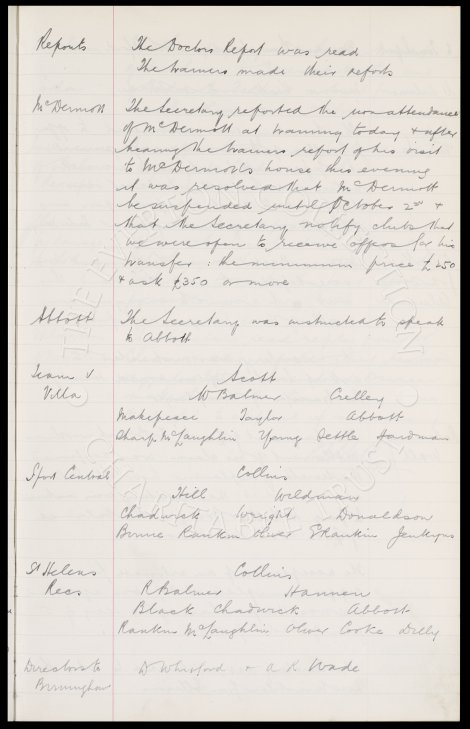 Reports The Doctors Report was read
The trainers made their reports
McDermott The Secretary reported the non attendance
of McDermott at training today & after
hearing the trainers report of his visit
to McDermott's house this evening
it was resolved that McDermott
be suspended until October 2nd &
that the Secretary notify clubs that
we were open to receive offers for his
transfer: the minimum price £250
& ask £350 or more
Abbott The Secretary was instructed to speak
to Abbott
Team v Scott
Villa W Balmer Crelley
Makepeace Taylor Abbott
Sharp McLaughlin Young Settle Hardman
Sport Central Collins
Hill Wildman
Chadwick Wright Donaldson
Birnie Rankin Oliver E Rankin Jenkins
St Helens Collins
Recs R Balmer Hannen
Black Chadwick Abbott
Rankin McLaughlin Oliver Cooke Dilly
Directors to D Whitford & A R Wade
Birmingham